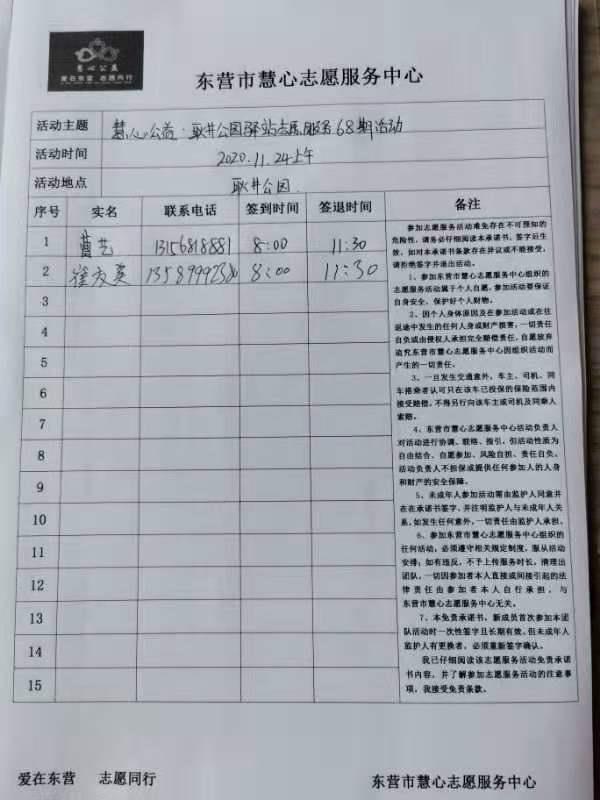 慧心公益
爱在东营 志愿同行
东营市慧心志愿服务中心
活动主题 慧心公益·耿井公园驿站志愿服务68期活动
活动时间 2020.11.24上午
活动地点 耿井公园
序号 实名 联系电话 签到时间 签退时间 备注
1 曹艺 13156818881 8:00 11:30
2 徐友英 8:00 11:30
3
4
5
6
7
8
9
10
11
12
13
14
15
参加志愿服务活动难免存在不可预知的
危险性,请务必仔细阅读本承诺书,签字后生
效,如对本承诺书条款存在异议或不能接受,
请拒绝签字并退出活动。
1、参加东营市慧心志愿服务中心组织的
志愿服务活动属于个人自愿,参加活动要保证
自身安全,保护好个人财物。
2、因个人身体原因及在参加活动或在往
返途中发生的任何人身或财产损害,一切责任
自负或由侵权人承担完全赔偿责任,自愿放弃
追究东营市慧心志愿服务中心因组织活动而
产生的一切责任。
3、一旦发生交通意外,车主、司机、同
车搭乘者认可只在该车已投保的保险范围内
接受赔偿,不得另行向该车主或司机及同乘人
索赔。
4、东营市慧心志愿服务中心活动负责人
对活动进行协调、联络、指引,但活动性质为
自由结合、自愿参加、风险自担、责任自负。
活动负责人不担保或提供任何参加人的人身
和财产的安全保障。
5、未成年人参加活动需由监护人同意并
在在承诺书签字,并注明监护人与未成年人关
系,如发生任何意外,一切责任由监护人承担。
6、参加东营市慧心志愿服务中心组织的
任何活动,必须遵守相关规定制度,服从活动
安排;如有违反,不予上传服务时长,清理出
团队,一切因参加者本人直接或间接引起的法
律责任由参加者本人自行承担,与
东营市慧心志愿服务中心无关。
7、本免责承诺书,新成员首次参加本团
队活动时一次性签字且长期有效,但未成年人
监护人有更换者,必须重新签字确认。
我已仔细阅读该志愿服务活动免责承诺
书内容,并了解参加志愿服务活动的注意事
项,我接受免责条款。
爱在东营 志愿同行 东营市慧心志愿服务中心